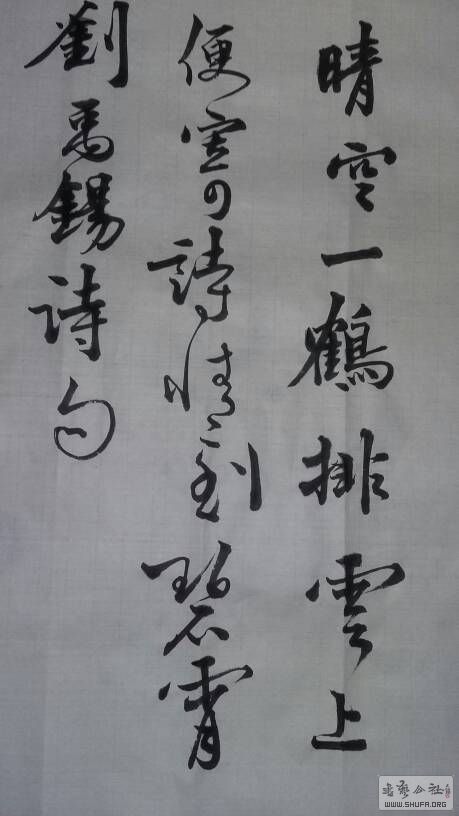 晴空一鶴排雲上
便寄詩情到碧霄
劉禹錫詩句
書藝公社
WWW.SHUFA.ORG